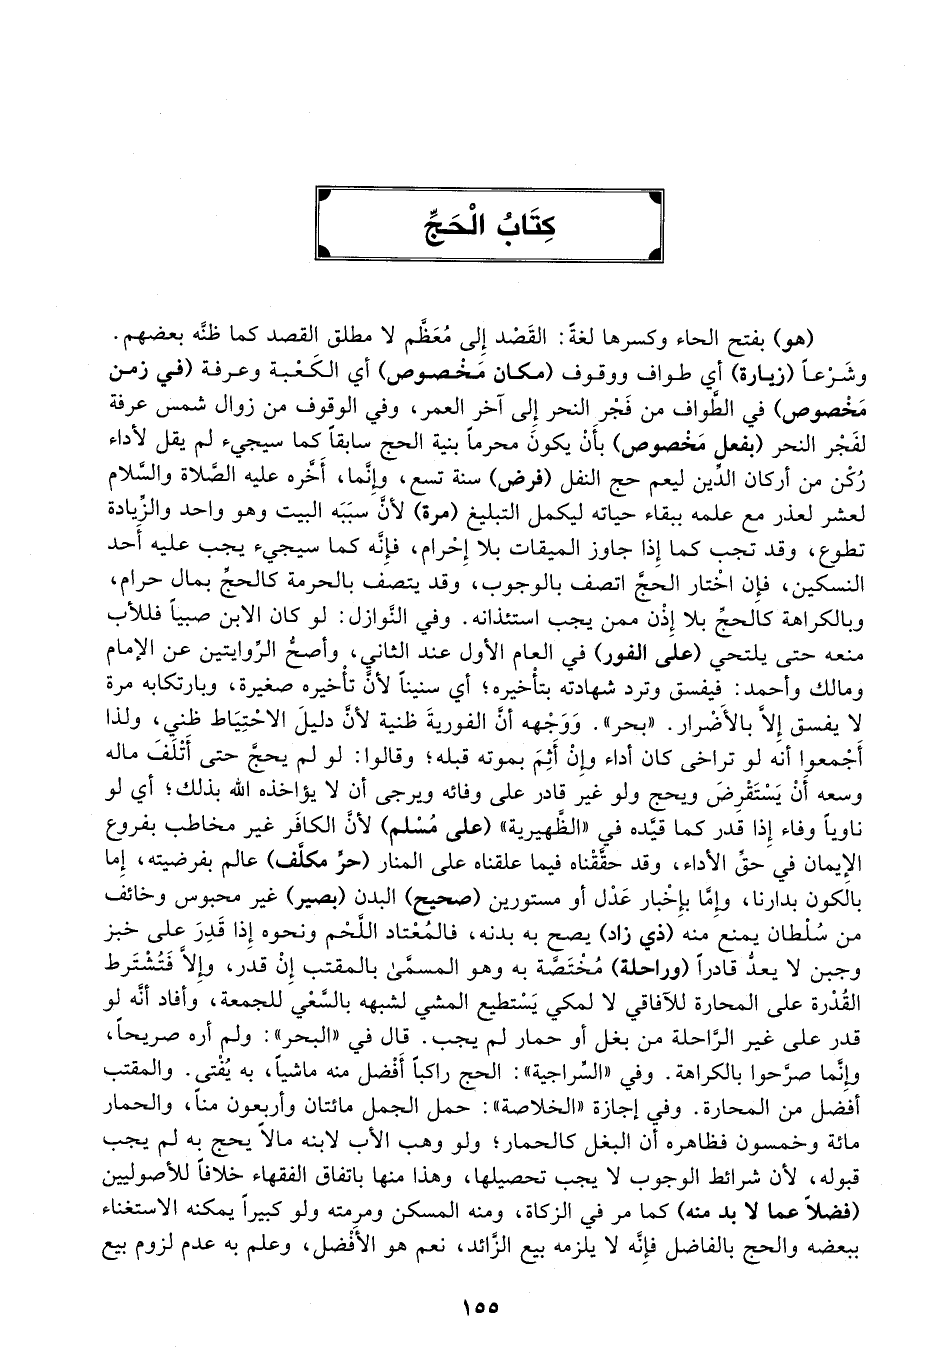 كِتَابُ الْحَجِّ
(هو) بفتح الحاء وكسرها لغةً: القَصْد إِلى مُعَظَّم لا مطلق القصد كما ظنَّه بعضهم.
وشَرْعاً (زيارة) أي طواف ووقوف (مكان مَخْصوص) أي الكَعْبة وعرفة (في زمن
مَخْصوص) في الطَّواف من فَجْر النحر إِلى آخر العمر، وفي الوقوف من زوال شمس عرفة
لفَجْر النحر (بفعل مَخْصوص) بأَنْ يكونَ محرماً بنية الحج سابقاً كما سيجيء لم يقل لأداء
رُكْن من أركان الدِّين ليعم حج النفل (فرض) سنة تسع، وإِنَّما، أَخَّره عليه الصَّلاة والسَّلام
لعشر لعذر مع علمه ببقاء حياته ليكمل التبليغ (مرة) لأنَّ سبَبَه البيت وهو واحد والزِّيادة
تطوع، وقد تجب كما إِذا جاوز الميقات بلا إِحْرام، فإِنَّه كما سيجيء يجب عليه أحد
النسكين، فإن اخْتار الحجَّ اتصف بالوجوب، وقد يتصف بالحرمة كالحجِّ بمال حرام،
وبالكراهة كالحجِّ بلا إِذْن ممن يجب استئذانه. وفي النَّوازل: لو كان الابن صبياً فللأب
منعه حتى يلتحي (على الفور) في العام الأول عند الثاني، وأصحُّ الرِّوايتين عن الإمام
ومالك وأحمد: فيفسق وترد شهادته بتأخيره؛ أي سنيناً لأنَّ تأْخيره صغيرة، وبارتكابه مرة
لا يفسق إِلاَّ بالأَضْرار. «بحر». وَوَجْهه أنَّ الفوريةَ ظنية لأنَّ دليلَ الاحْتِيَاط ظني، ولذا
أَجْمعوا أنه لو تراخى كان أداء وإِنْ أَثِمَ بموته قبله؛ وقالوا: لو لم يحجَّ حتى أَتْلَفَ ماله
وسعه أَنْ يَسْتَقْرِضَ ويحج ولو غير قادر على وفائه ويرجى أن لا يؤاخذه الله بذلك؛ أي لو
ناوياً وفاء إِذا قدر كما قيَّده في «الظَّهيرية» (على مُسْلم) لأنَّ الكافَر غير مخاطب بفروع
الإِيمان في حقِّ الأداء، وقد حقَّقْناه فيما علقناه على المنار (حرِّ مكلَّف) عالم بفرضيته، إما
بالكون بدارنا، وإِمَّا بإِخْبار عَدْل أو مستورين (صحيح) البدن (بصير) غير محبوس وخائف
من سُلْطان يمنع منه (ذي زاد) يصح به بدنه، فالمُعْتاد اللَّحْم ونحوه إِذا قَدِرَ على خبز
وجبن لا يعدُّ قادراً (وراحلة) مُخْتَصَّة به وهو المسمَّىٰ بالمقتب إِنْ قدر، وإِلاَّ فَتُشْتَرط
القُدْرة على المحارة للآفاقي لا لمكي يَسْتطيع المشي لشبهه بالسَّعْي للجمعة، وأفاد أنَّه لو
قدر على غير الرَّاحلة من بغل أو حمار لم يجب. قال في «البحر»: ولم أره صريحاً،
وإِنَّما صرَّحوا بالكراهة. وفي «السِّراجية»: الحج راكباً أَفْضل منه ماشياً، به يُفْتى. والمقتب
أفضل من المحارة. وفي إجازة «الخلاصة»: حمل الجمل مائتان وأربعون مناً، والحمار
مائة وخمسون فظاهره أن البغل كالحمار؛ ولو وهب الأب لابنه مالاً يحج به لم يجب
قبوله، لأن شرائط الوجوب لا يجب تحصيلها، وهذا منها باتفاق الفقهاء خلافاً للأصوليين
(فضلاً عما لا بد منه) كما مر في الزكاة، ومنه المسكن ومرمته ولو كبيراً يمكنه الاستغناء
ببعضه والحج بالفاضل فإِنَّه لا يلزمه بيع الزَّائد، نعم هو الأَفْضل، وعلم به عدم لزوم بيع
١٥٥